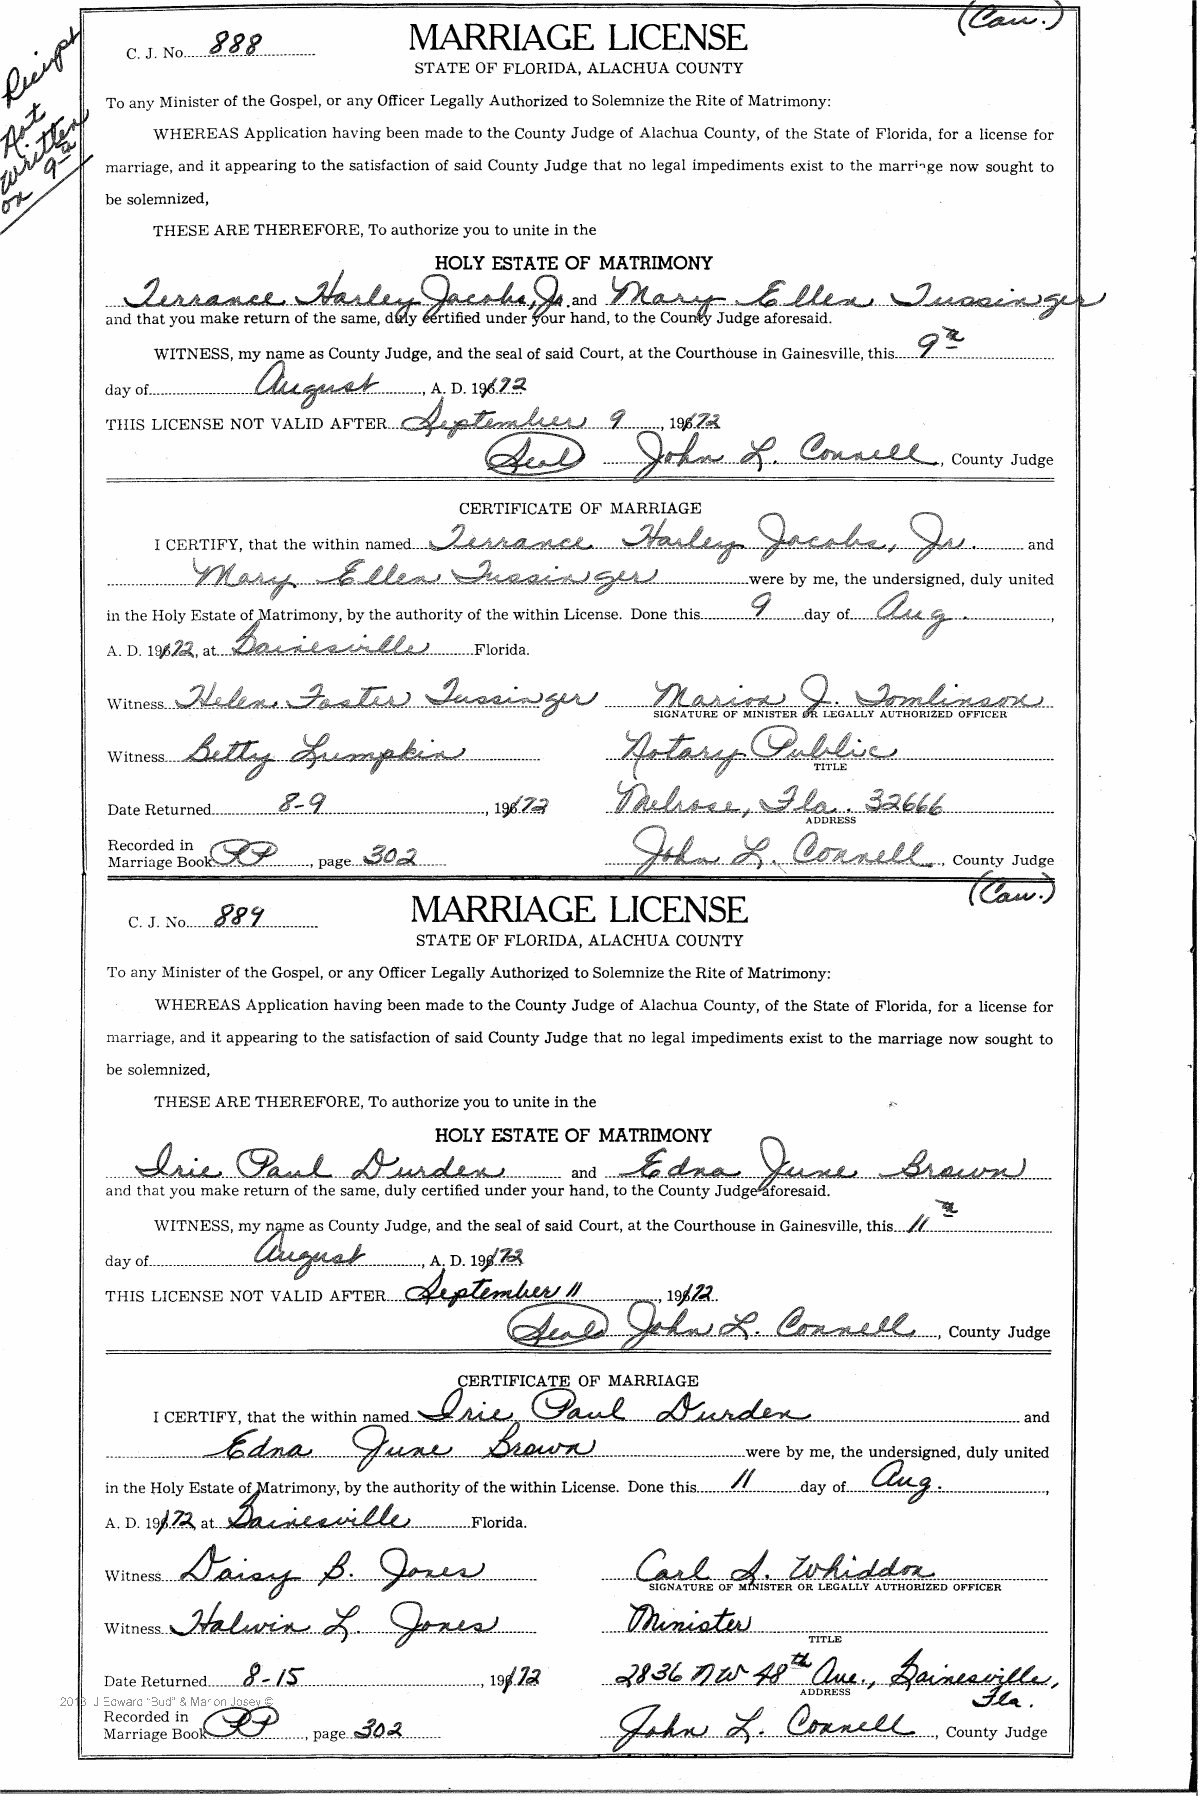 (Cau.)
C. J. No. 888
MARRIAGE LICENSE
STATE OF FLORIDA, ALACHUA COUNTY
Receipt
Not
written
on 9th
To any Minister of the Gospel, or any Officer Legally Authorized to Solemnize the Rite of Matrimony:
WHEREAS Application having been made to the County Judge of Alachua County, of the State of Florida, for a license for
marriage, and it appearing to the satisfaction of said County Judge that no legal impediments exist to the marriage now sought to
be solemnized,
THESE ARE THEREFORE, To authorize you to unite in the
HOLY ESTATE OF MATRIMONY
Terrance Harley Jacobs, Jr. and Mary Ellen Tussinger
and that you make return of the same, duly certified under your hand, to the County Judge aforesaid.
WITNESS, my name as County Judge, and the seal of said Court, at the Courthouse in Gainesville, this 9th
day of August, A. D. 1972
THIS LICENSE NOT VALID AFTER September 9, 1972
(Seal) John L. Connell, County Judge
CERTIFICATE OF MARRIAGE
I CERTIFY, that the within named Terrance Harley Jacobs, Jr. and
Mary Ellen Tussinger were by me, the undersigned, duly united
in the Holy Estate of Matrimony, by the authority of the within License. Done this 9 day of Aug.,
A. D. 1972, at Gainesville Florida.
Witness Helen Foster Tussinger Marion J. Tomlinson
SIGNATURE OF MINISTER OR LEGALLY AUTHORIZED OFFICER
Witness Betty Lumpkin Notary Public
TITLE
Date Returned 8-9, 1972 Melrose, Fla. 32666
ADDRESS
Recorded in
Marriage Book PP, page 302 John L. Connell, County Judge
(Cau.)
C. J. No. 889
MARRIAGE LICENSE
STATE OF FLORIDA, ALACHUA COUNTY
To any Minister of the Gospel, or any Officer Legally Authorized to Solemnize the Rite of Matrimony:
WHEREAS Application having been made to the County Judge of Alachua County, of the State of Florida, for a license for
marriage, and it appearing to the satisfaction of said County Judge that no legal impediments exist to the marriage now sought to
be solemnized,
THESE ARE THEREFORE, To authorize you to unite in the
HOLY ESTATE OF MATRIMONY
Irie Paul Durden and Edna June Brown
and that you make return of the same, duly certified under your hand, to the County Judge aforesaid.
WITNESS, my name as County Judge, and the seal of said Court, at the Courthouse in Gainesville, this 11th
day of August, A. D. 1972
THIS LICENSE NOT VALID AFTER September 11, 1972
(Seal) John L. Connell, County Judge
CERTIFICATE OF MARRIAGE
I CERTIFY, that the within named Irie Paul Durden and
Edna June Brown were by me, the undersigned, duly united
in the Holy Estate of Matrimony, by the authority of the within License. Done this 11 day of Aug.,
A. D. 1972, at Gainesville Florida.
Witness Daisy B. Jones Carl S. Whiddon
SIGNATURE OF MINISTER OR LEGALLY AUTHORIZED OFFICER
Witness Halwin L. Jones Minister
TITLE
Date Returned 8-15, 1972 2836 NW 48th Ave., Gainesville, Fla.
ADDRESS
2013 J Edward "Bud" & Marion Josey ©
Recorded in
Marriage Book PP, page 302 John L. Connell, County Judge